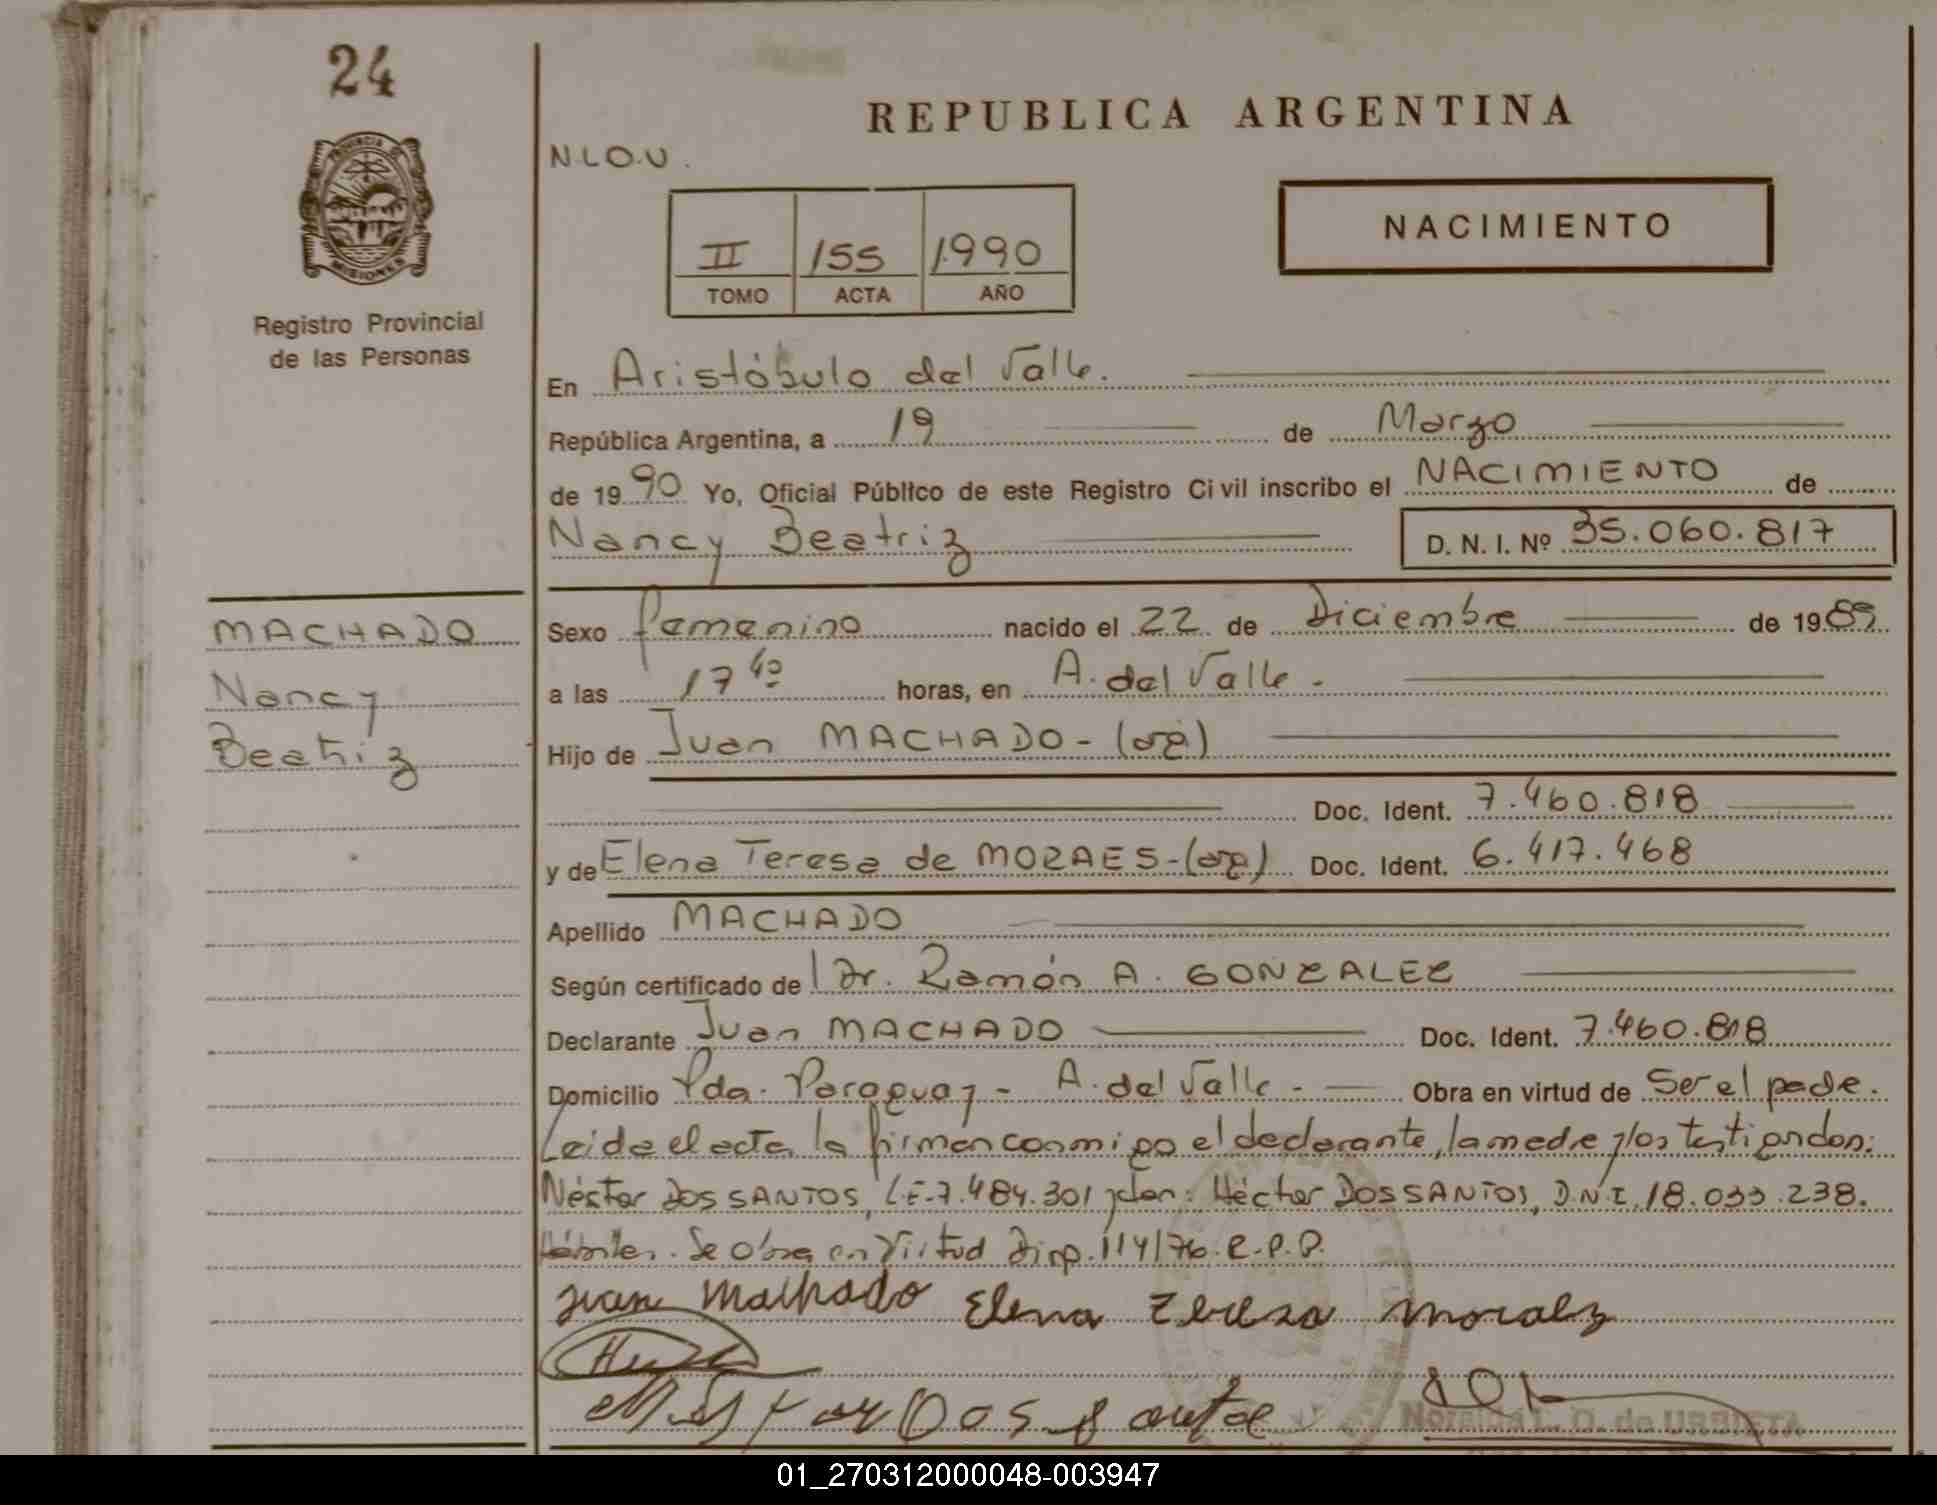 24
REPUBLICA ARGENTINA
N.L.O.U.
PROVINCIA DE
MISIONES
Registro Provincial
de las Personas
II 155 1990
TOMO ACTA AÑO
NACIMIENTO
En Aristóbulo del Valle.
República Argentina, a 19 de Marzo
de 1990 Yo, Oficial Público de este Registro Civil inscribo el NACIMIENTO de
Nancy Beatriz D. N. I. Nº 35.060.817
MACHADO
Nancy
Beatriz
Sexo femenino nacido el 22 de Diciembre de 1989
a las 17 40 horas, en A. del Valle -
Hijo de Juan MACHADO - (arg)
Doc. Ident. 7.460.818
y de Elena Teresa de MORAES - (arg) Doc. Ident. 6.417.468
Apellido MACHADO
Según certificado de Dr. Ramón A. GONZALEZ
Declarante Juan MACHADO Doc. Ident. 7.460.818
Domicilio Pda. Paraguay - A. del Valle - Obra en virtud de Ser el padre.
Leida el acta, la firman conmigo el declarante, la madre y los testigos don:
Néstor DOS SANTOS, L.E. 7.484.301 y don: Héctor DOS SANTOS, D.N.I. 18.033.238.
Hábiles. Se obra en Virtud Disp. 114/76. R.P.P.
Juan Machado Elena Tereza Moraez
Nestor Dos
L. D. de URBIETA
01_270312000048-003947